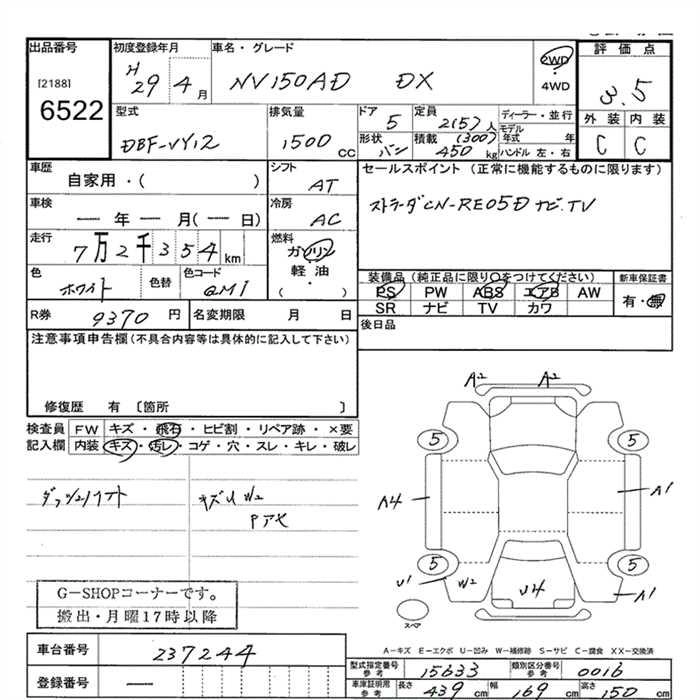 出品番号 初度登録年月 車名・グレード 評価点
[2188] H 29 4月 NV150AD DX 2WD 3.5
6522 4WD
型式 排気量 ドア 5 定員 2(5)人 ディーラー・並行 外装 内装
DBF-VY12 1500 CC 形状 バン 積載 (300) 450 kg モデル年式 年 C C
ハンドル 左・右
車歴 シフト セールスポイント (正常に機能するものに限ります)
自家用・( ) AT
車検 冷房 ストラーダCN-RE05D ナビ、TV
― 年 ― 月(― 日) AC
走行 燃料
7万2千354km ガソリン
色 色替 色コード 軽油 装備品 (純正品に限り○をつけてください) 新車保証書
ホワイト QM1 ( ・ ) PS PW ABS エアB AW 有・無
R券 9370 円 名変期限 月 日 SR ナビ TV カワ
注意事項申告欄(不具合内容等は具体的に記入して下さい) 後日品
修復歴 有 〔箇所 〕
検査員 FW キズ・飛石・ヒビ割・リペア跡・×要
記入欄 内装 キズ・汚レ・コゲ・穴・スレ・キレ・破レ
キズU W2
A2 A2
5 5
A4 A1
5 5
U1 W2 U4 A1
スペア
G-SHOPコーナーです。
搬出・月曜17時以降
A-キズ E-エクボ U-凹み W-補修跡 S-サビ C-腐食 XX-交換済
車台番号 237244 型式指定番号 参考 15633 類別区分番号 参考 0016
登録番号 ― 車庫証明用 参考 長さ 439 cm 幅 169 cm 高さ 150 cm